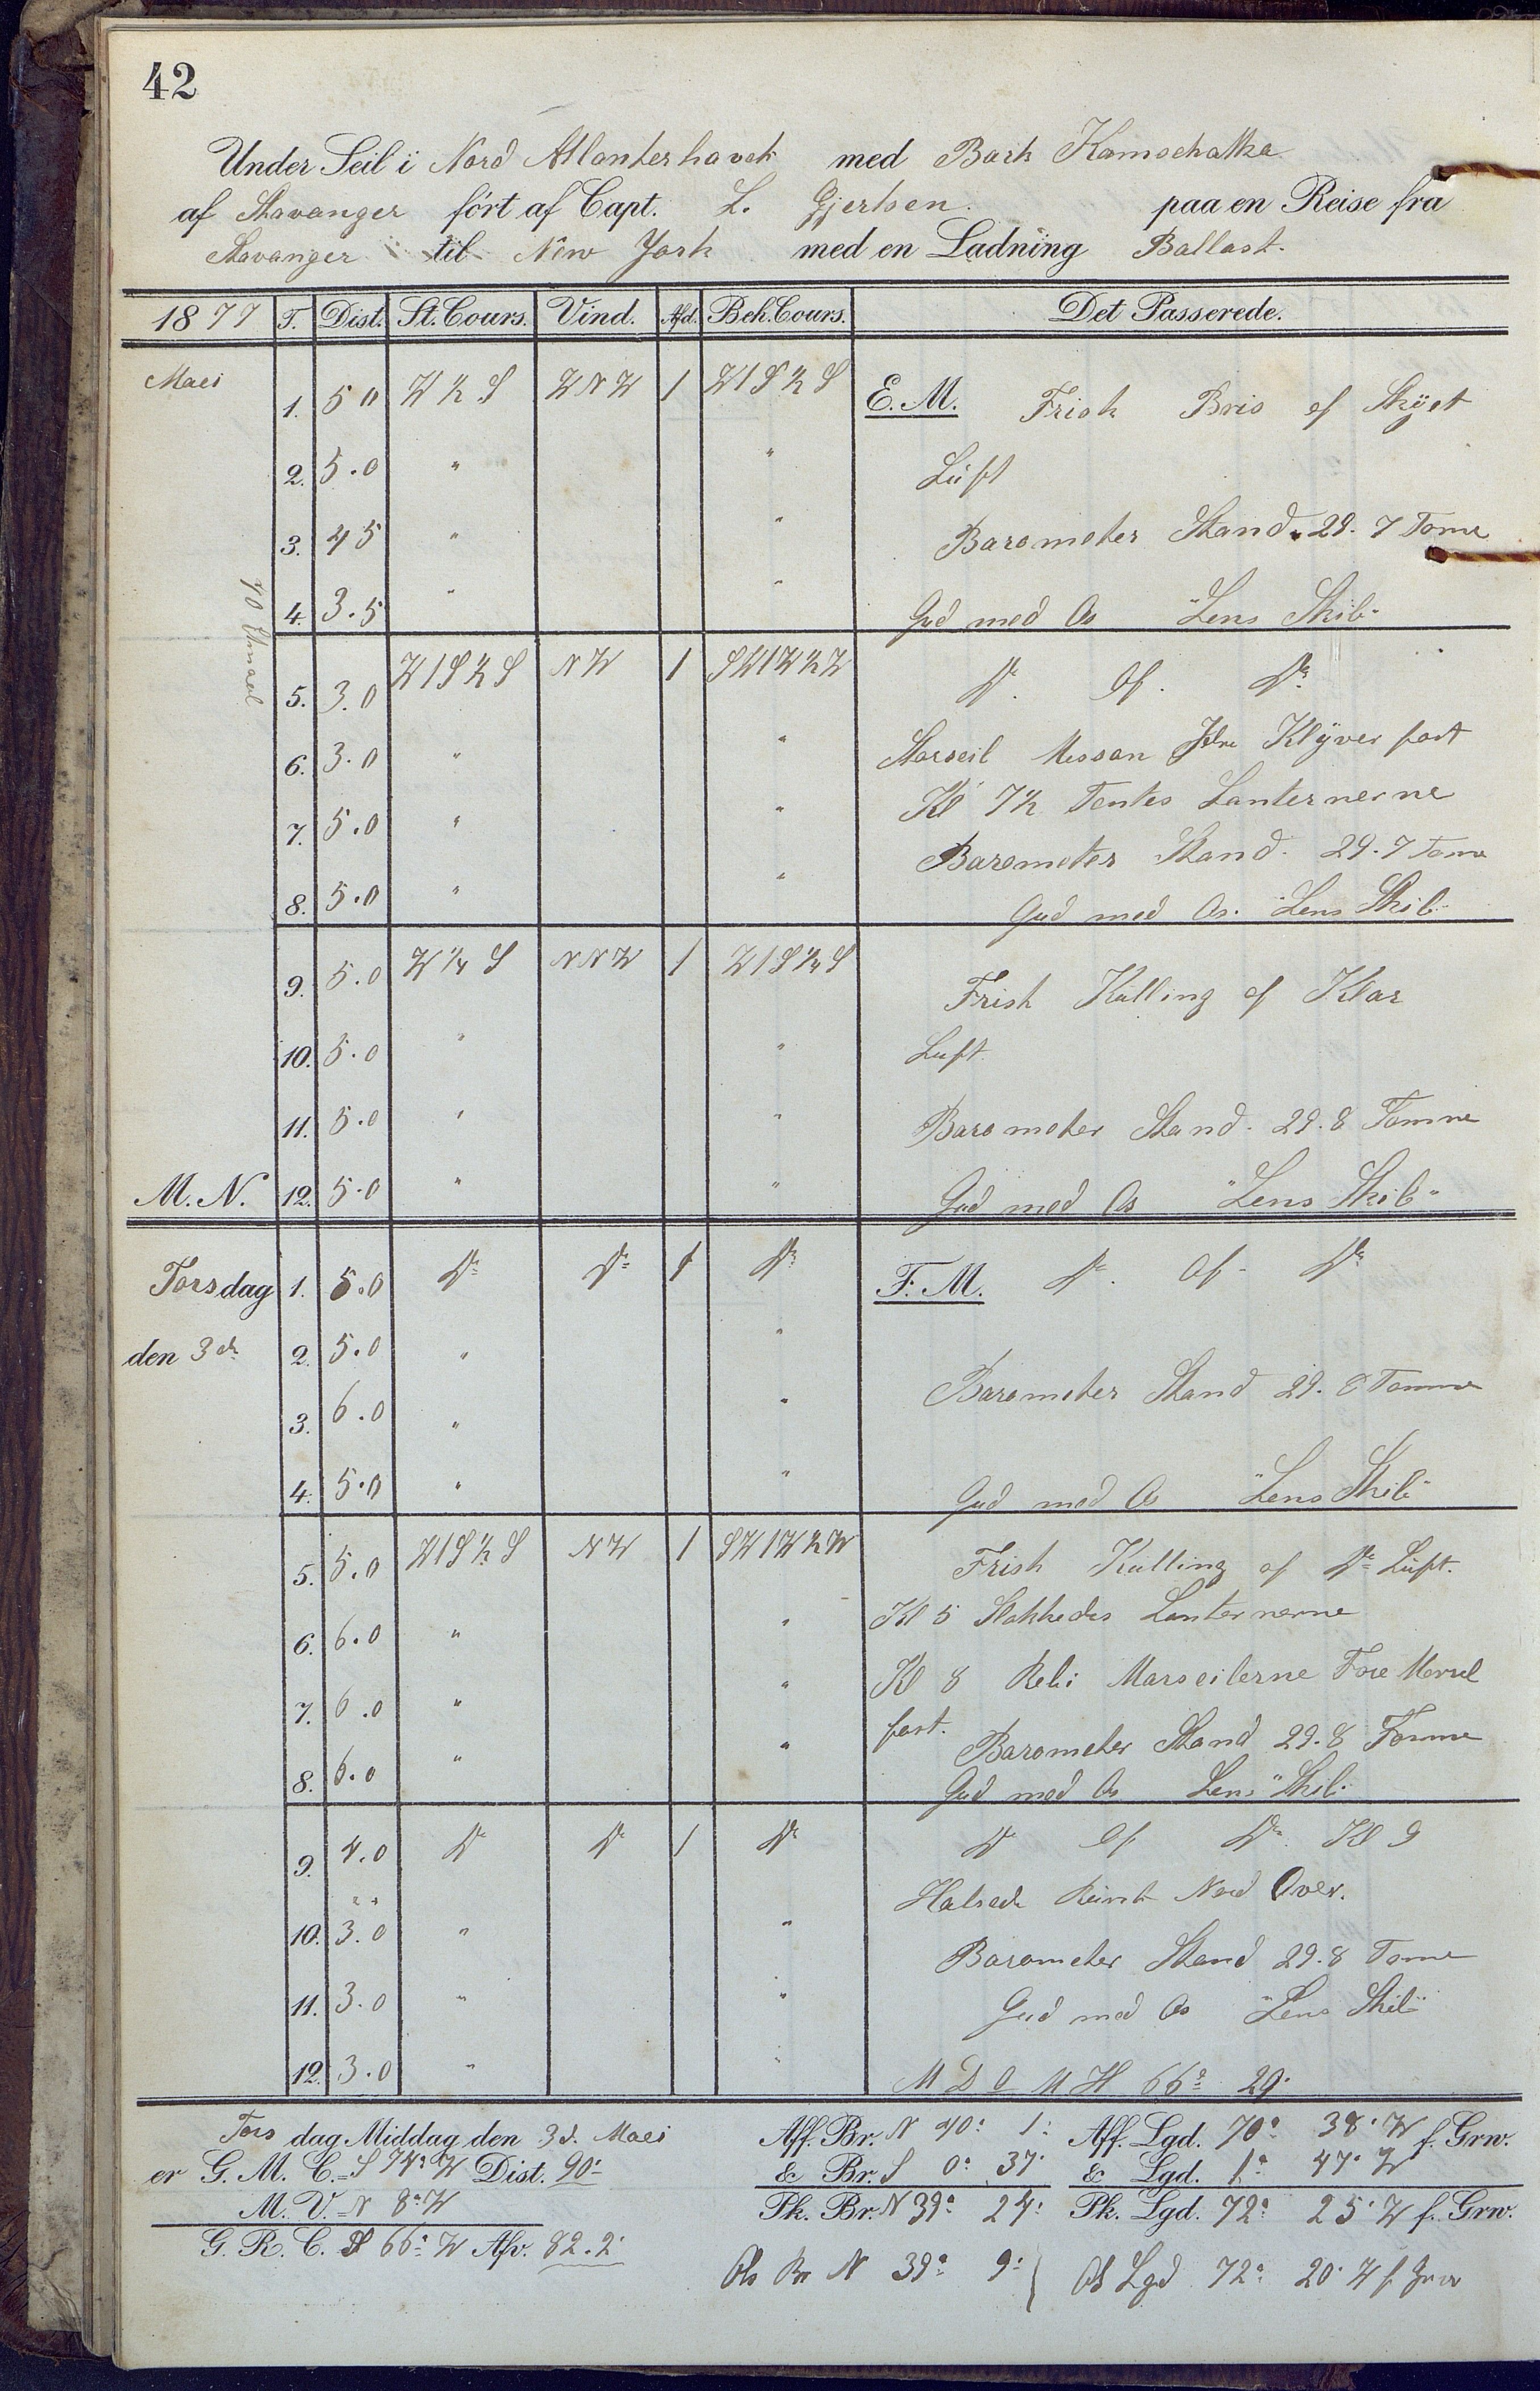 42
Under Seil i Nord Atlanterhavet med Bark Kamschatka
af Stavanger ført af Capt. L. Gjertsen. paa en Reise fra
Stavanger til New York med en Ladning Ballast.
1877 T. Dist. St. Cours. Vind. Afd. Beh. Cours. Det Passerede.
Maei 1. 5 0 W ½ S WNW 1 W1S ½ S E. M. Frisk Bris of Skÿet
2. 5.0 " " Lüft
3. 4 5 " " Barometer Stand. 29. 7 Tome
4. 3.5 " " Gud med Os "Lens Skib"
70 Etmaal
5. 3.0 W1S ½ S NW 1 SW1W ½ W Do. Of. Do
6. 3.0 " " Storseil Messan Jdre Klÿver fast
7. 5.0 " " Kl 7½ Tentes Lanternerne
Barometer Stand. 29. 7 Tome
8. 5.0 " " Gud med Os. "Lens Skib"
9. 5.0 W ¼ S NNW 1 W1S ¼ S Frisk Kulling of Klar
10. 5.0 " " Luft
11. 5.0 " " Barometer Stand. 29. 8 Tomme
M. N. 12. 5.0 " " Gud med Os "Lens Skib"
Torsdag 1. 5.0 Do Do 1 Do F. M. Do. Of. Do
den 3de 2. 5.0 " "
3. 6.0 " " Barometer Stand 29. 8 Tomme
4. 5.0 " " Gud med Os "Lens Skib"
5. 5.0 W1S ½ S NW 1 SW1W ½ W Frisk Kulling of Do Lüft.
6. 6.0 " " Kl 5 Slakkedes Lanternerne
7. 6.0 " " Kl 8 Marseilerne
fast. Barometer Stand 29. 8 Tomme
8. 6.0 " " Gud med Os Lens "Skib"
9. 4.0 Do Do 1 Do Do Of Do. Kl 9
" " Halsede Rundt Nord Over.
10. 3.0 " " Barometer Stand 29. 8 Tome
11. 3.0 " " Gud med Os "Lens Skib"
12. 3.0 " " M D O M H 66° 29'
Torsdag Middag den 3d. Maei Aff. Br. N 40° 1' Aff. Lgd. 70° 38' W f. Grw.
er G. M. C. = S 74° W Dist. 90' & Br. S 0° 37' & Lgd. 1° 47' W
M. V. = N 8° W Pk. Br. N 39° 24' Pk. Lgd. 72° 25' W f. Grw.
G. R. C. S 66° W Afv. 82.2' Obs Br N 39° 9' Ob Lgd 72° 20' W f. Grw